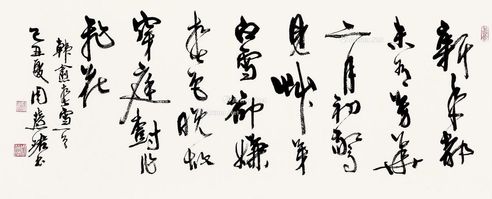 新年都
未有芳華
二月初驚
見艸芽
白雪卻嫌
春色晚故
穿庭樹作
飛花
韓愈春雪
己丑夏周慧珺書